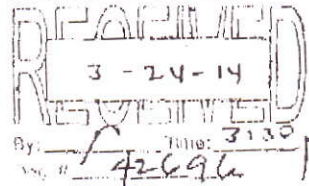 RECEIVED
3-24-14
By: Time: 3:30
42696